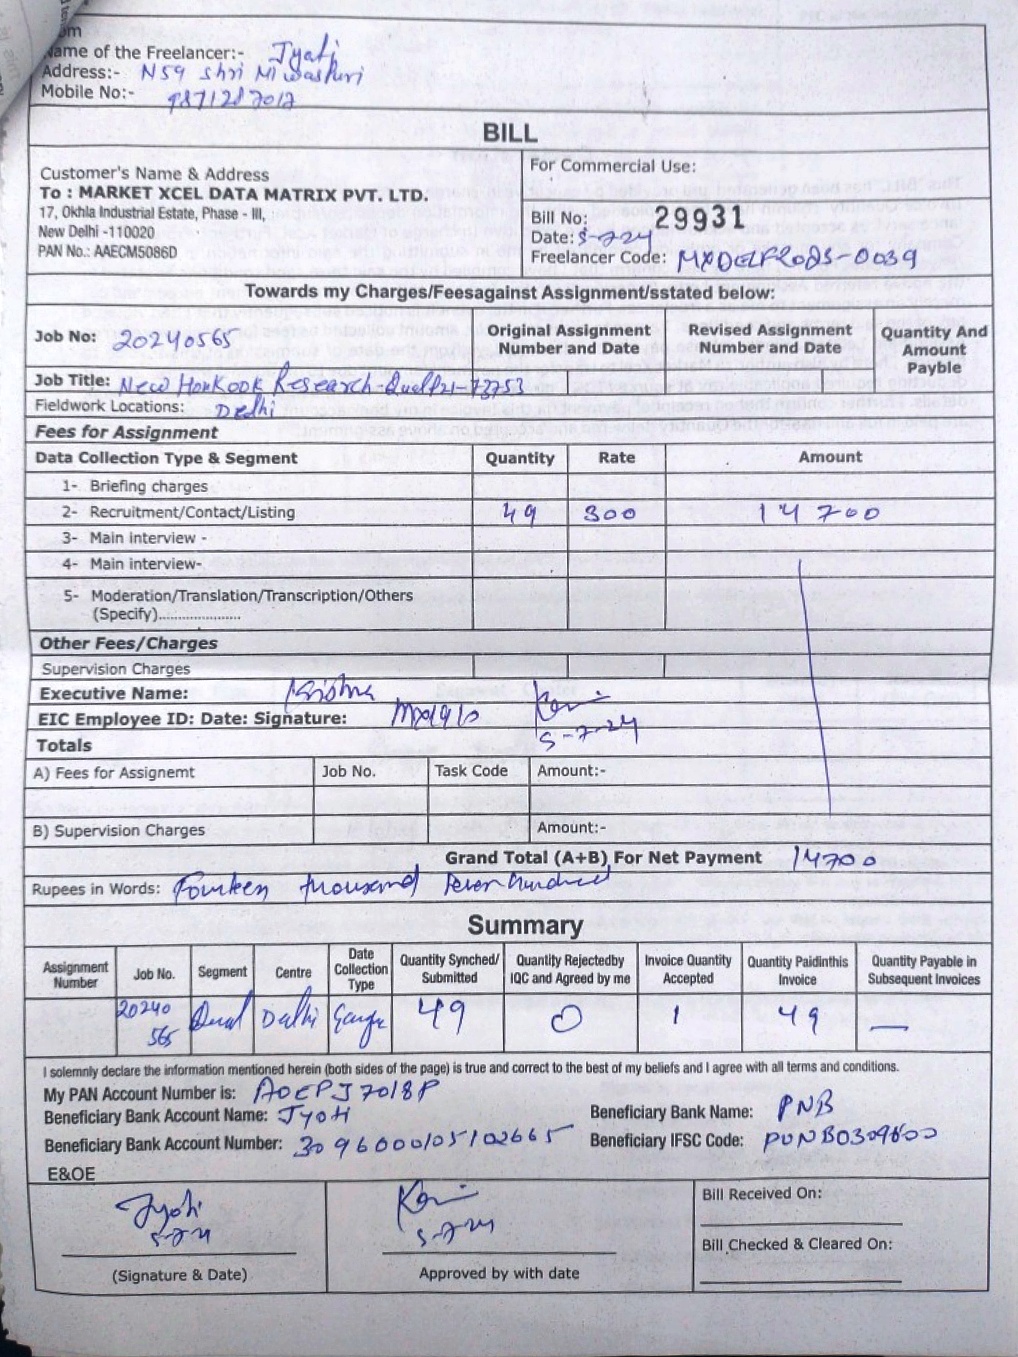 Name of the Freelancer:- Jyoti
Address:- N59 Shri Niwaspuri
Mobile No:- 9871287012
BILL
Customer's Name & Address
To : MARKET XCEL DATA MATRIX PVT. LTD.
17, Okhla Industrial Estate, Phase - III,
New Delhi -110020
PAN No.: AAECM5086D
For Commercial Use:
Bill No: 29931
Date: 5-7-24
Freelancer Code: MXDELFR02DS-0039
Towards my Charges/Feesagainst Assignment/sstated below:
Job No: 20240565
Original Assignment Number and Date
Revised Assignment Number and Date
Quantity And Amount Payble
Job Title: New Honkook Research-Qual P21-73753
Fieldwork Locations: Delhi
Fees for Assignment
Data Collection Type & Segment Quantity Rate Amount
1- Briefing charges
2- Recruitment/Contact/Listing 49 300 14700
3- Main interview -
4- Main interview-
5- Moderation/Translation/Transcription/Others
(Specify).....................
Other Fees/Charges
Supervision Charges
Executive Name: Krishna
EIC Employee ID: Date: Signature:
5-7-24
Totals
A) Fees for Assignemt Job No. Task Code Amount:-
B) Supervision Charges Amount:-
Grand Total (A+B) For Net Payment 14700
Rupees in Words: Fourteen thousand seven hundred
Summary
Assignment Number Job No. Segment Centre Date Collection Type Quantity Synched/ Submitted Quantity Rejectedby IQC and Agreed by me Invoice Quantity Accepted Quantity Paidinthis Invoice Quantity Payable in Subsequent Invoices
20240 565 Qual Delhi 49 0 1 49 —
I solemnly declare the information mentioned herein (both sides of the page) is true and correct to the best of my beliefs and I agree with all terms and conditions.
My PAN Account Number is: AOEPJ7018P
Beneficiary Bank Account Name: Jyoti
Beneficiary Bank Name: PNB
Beneficiary Bank Account Number: 3096000105102665
Beneficiary IFSC Code: PUNB0309600
E&OE
Jyoti
5-7-24
(Signature & Date)
5-7-24
Approved by with date
Bill Received On:
Bill Checked & Cleared On: